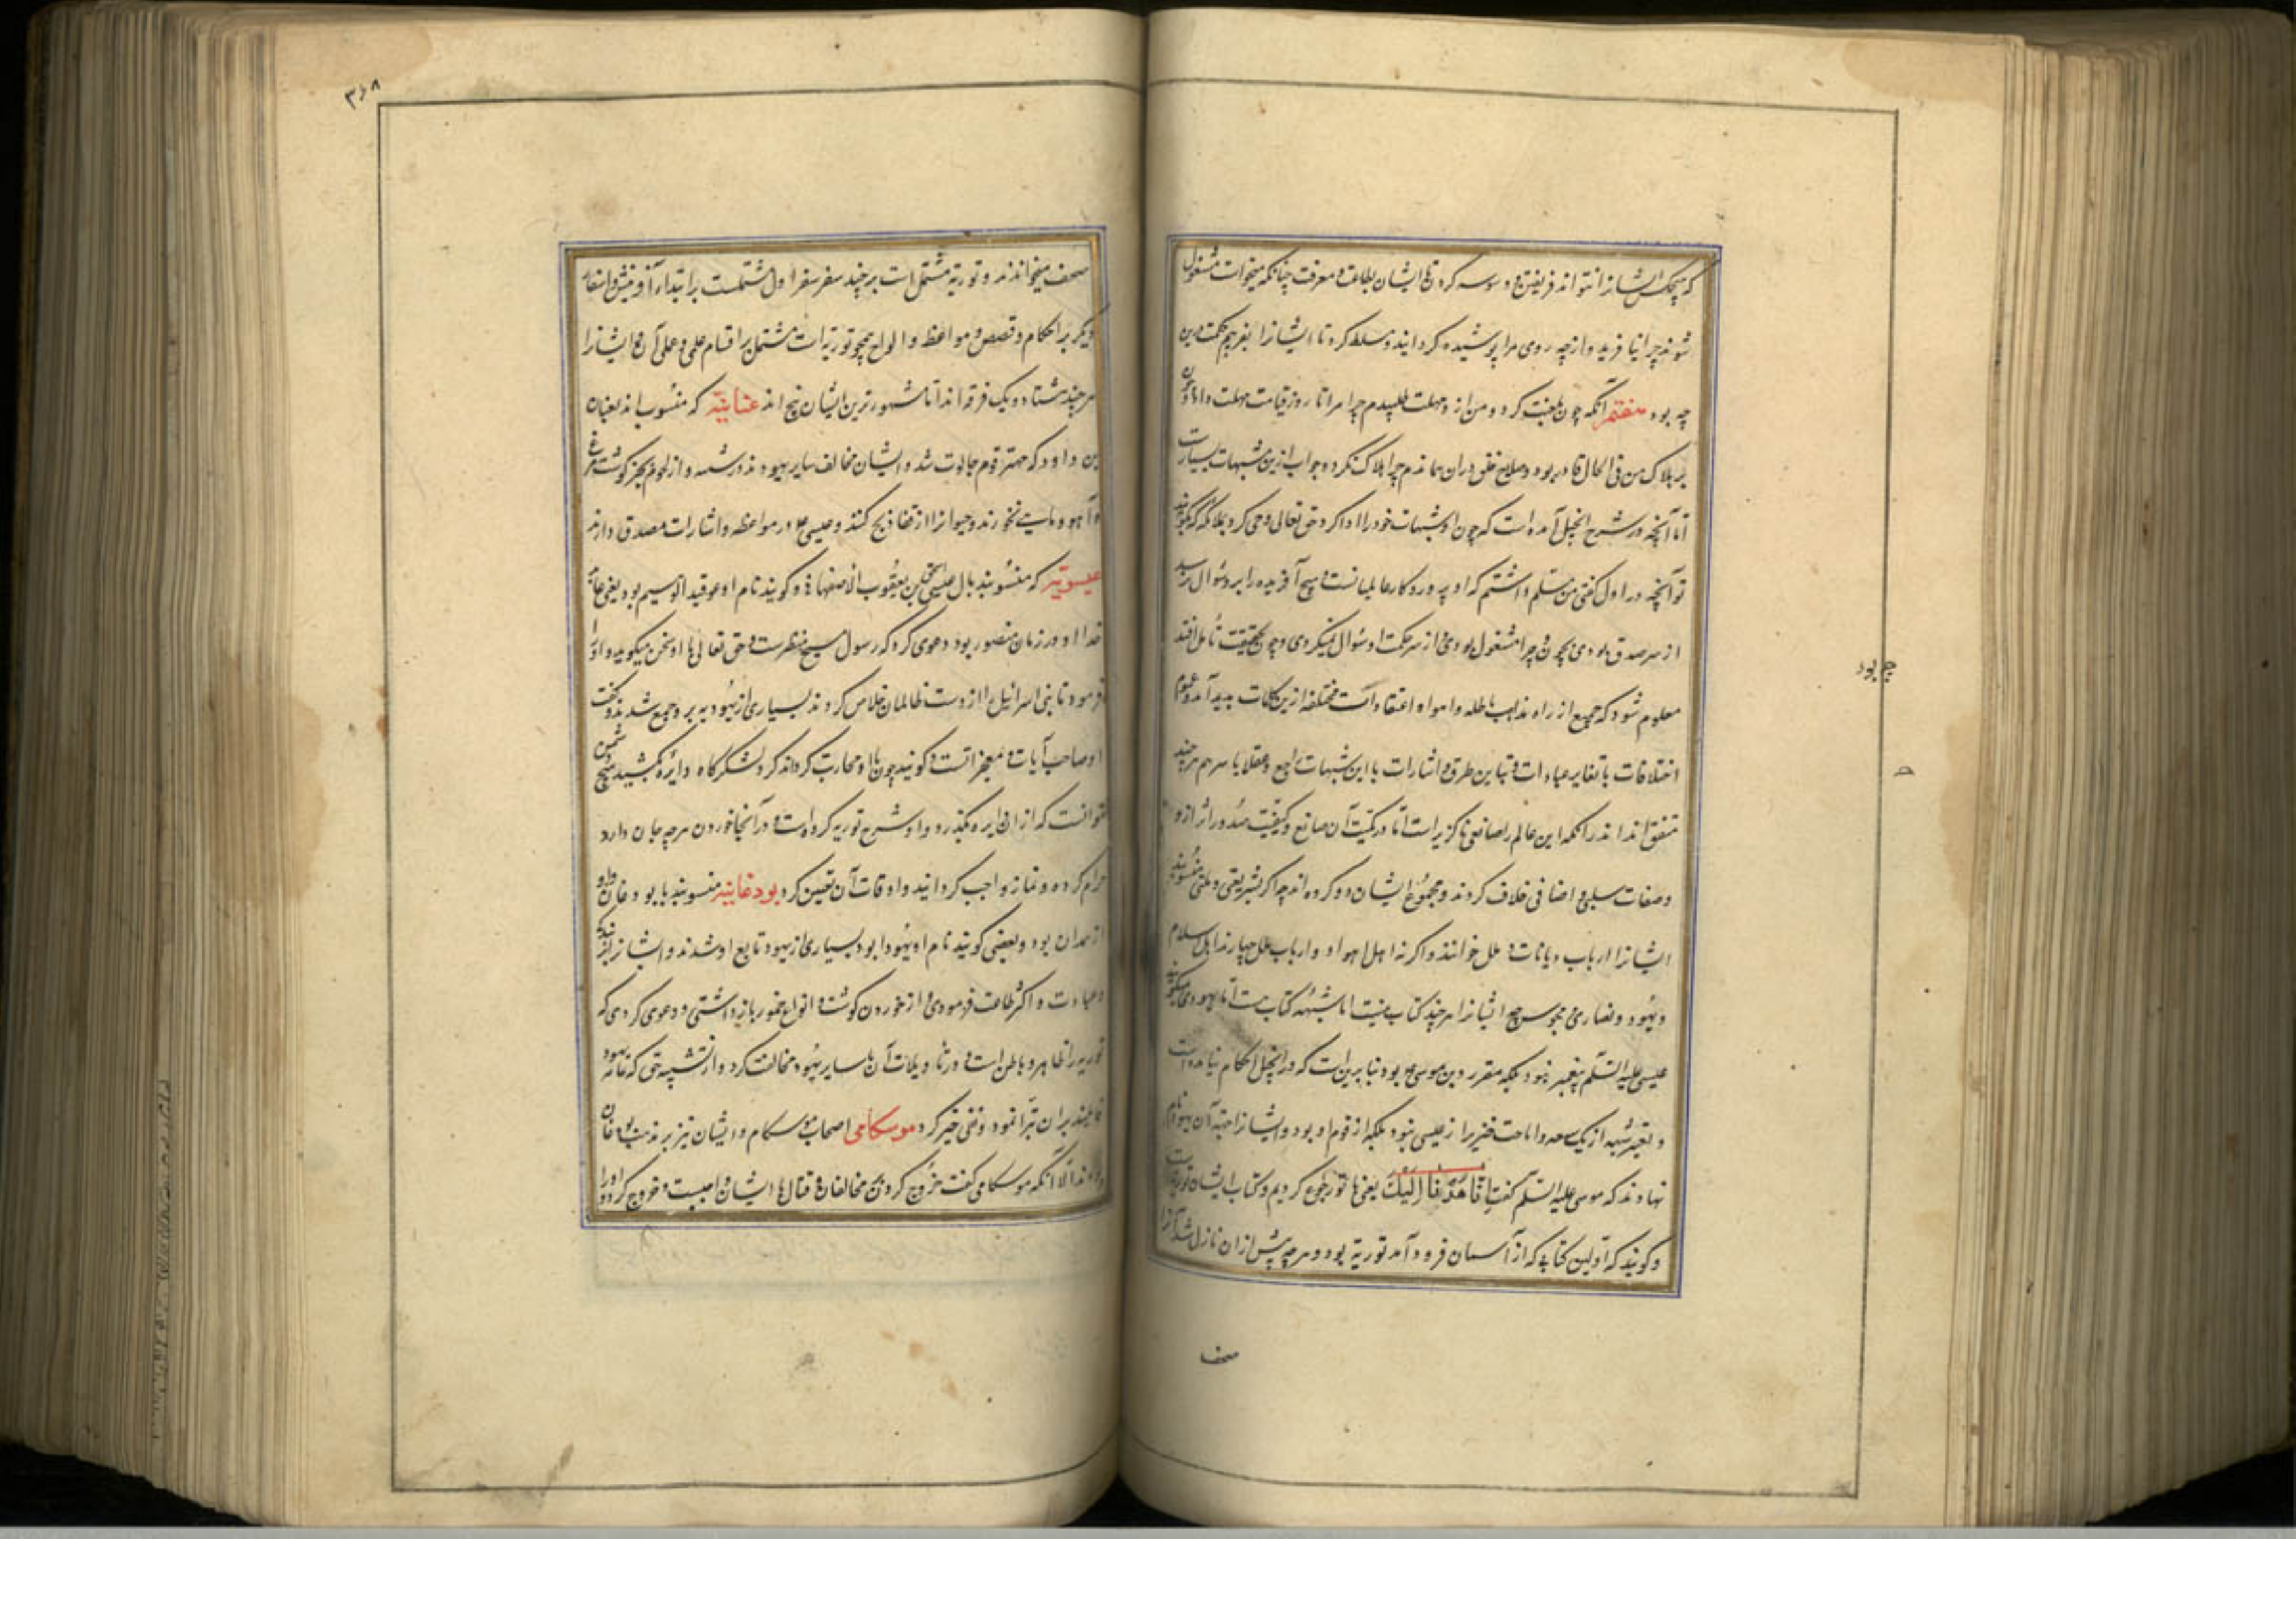 که هیچکس ایشانرا نتواند فریفتن و وسوسه کردن تا ایشان بطاعت و معرفت چنانکه میخواست مشغول
شوند چرا نیافرید و از چه روی مرا پوشیده گردانید و مسلط کرد تا ایشانرا بفریبم حکمت درین
چه بود هفتم آنکه چون لعنت کرد و من ازو مهلت طلبیدم چرا مرا تا روز قیامت مهلت داد و چون
بر هلاک من فی الحال قادر بود و صلاح خلق در آن بماندم چرا هلاک نکرد و جواب ازین شبهات بسیارست
اما آنچه در شرح انجیل آمده است که چون او شبهات خود را ادا کرد حق تعالی وحی کرد بملائکه که بگویید
تو آنچه در اول گفتی من مسلم داشتم که او پروردگار عالمیانست و هیچ آفریده را برو سؤال نرسد
از سر صدق بودی بچون و چرا مشغول نبودی و از سر حکمت او سؤال نمیکردی و چون بحقیقت تأمل افتد
معلوم شود که جمیع از راه مذاهب باطله و اهواء و اعتقادات مختلفه ازین کلمات پدید آمد و عموم
اختلافات با تغایر عبادات و تباین طرق و اشارات با این شبهات راجع و عقلا با سرهم هرچند
متفق‌اند اندر آنکه این عالم را صانعی ناگزیر است اما در کمیت آن صانع و کیفیت صدور اثر ازو
و صفات سلبی و اضافی خلاف کردند و مجموع ایشان دو گروه‌اند چه اگر بشریعتی و ملتی منسوبند
ایشانرا ارباب دیانات و ملل خوانند و اگر نه اهل اهواء و ارباب ملل چهارند اهل اسلام
و یهود و نصاری و مجوس چه ایشانرا هرچند کتاب نیست اما شبهه کتاب هست اما یهود میگویند
عیسی علیه السلم پیغمبر نبود بلکه مقرر دین موسی ع بود بنابرین است که در انجیل احکام نیامده است
و تغییر شنبه از یکشنبه و اباحت خنزیر از عیسی نبود بلکه از قوم او بود و ایشانرا جهة آن یهود نام
نهادند که موسی علیه السلم گفت اِنَّا هُدْنَا اِلَيْكَ یعنی با تو رجوع کردیم و کتاب ایشان توریتست
و گویند که اولین کتابی که از آسمان فرود آمد توریة بود و هرچه پیش ازان نازل شد آنرا
صحف
چه بود
۳۶۸
صحف میخوانند و توریة مشتمل است بر چند سفر سفر اول مشتملست بر ابتداء آفرینش و اسفار
دیگر بر احکام و قصص و مواعظ و الواح همچو توریة است مشتمل بر اقسام علمی و عملی آن و ایشانرا
هرچند هشتاد و یک فرقه‌اند اما مشهورترین ایشان پنج‌اند عنانیّه که منسوب‌اند بعنان
بن داود که مهتر قوم جالوت شد و ایشان مخالف سایر یهودند در سبت و از لحوم بجز گوشت مرغ
و آهو و ماهی نخورند و حیوانرا از قفا ذبح کنند و عیسی را در مواعظ و اشارات مصدق دارند
عیسویّه که منسوبند بابی عیسی اسحق بن یعقوب الاصفهانی و گویند نام او عوقید الوسیم بود یعنی عابد
خدا او در زمان منصور بود دعوی کرد که رسول مسیح منتظرست و حق تعالی با او سخن میگوید و او را
فرمود تا بنی اسرائیل را از دست ظالمان خلاص کردند بسیاری از یهود بر و جمع شدند و گفت
او صاحب آیات و معجزاتست و گویند چون با او محاربت کردند گرد لشکرگاه دایره کشید هیچ دشمن
نتوانست که از آن دایره بگذرد و او شرح توریه کرده است و در آنجا خوردن هرچه جان دارد
حرام کرده و نماز واجب گردانید و اوقات آن تعیین کرد بودغانیّه منسوبند با بودغان و او
از همدان بود و بعضی گویند نام او یهودا بود بسیاری از یهود تابع او شدند و ایشانرا بزهد
و عبادت و اکثر طاعت فرمودی و از خوردن گوشت و انواع خمور بازداشتی و دعوی کردی که
توریه را ظاهر و باطن است و در تأویلات آن با سایر یهود مخالفت کرد و از تشبیه حق که عامه یهود
قایلند بران تبرا نمود و نفی خیر کرد موسکامی اصحاب موسکام و ایشان نیز بر مذهب بودغان
بودند الا آنکه موسکامی گفت خروج کردن بر مخالفان و قتال با ایشان واجبست و خروج کرد و او را